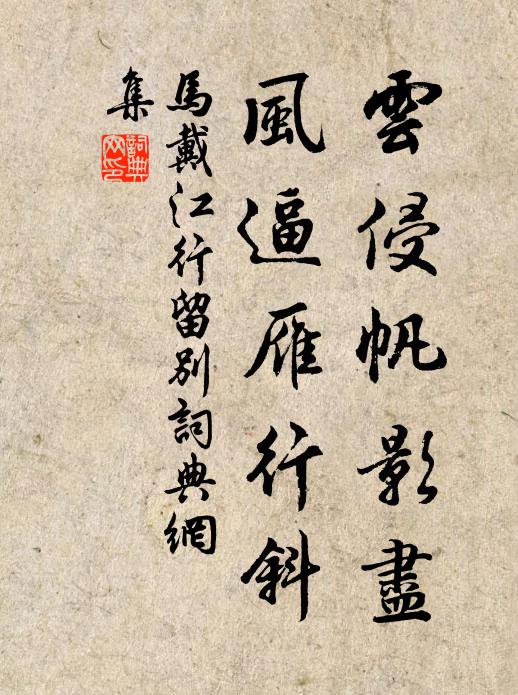 雲侵帆影盡
風逼雁行斜
馬戴江行留別詞典網
集
詞典
网印